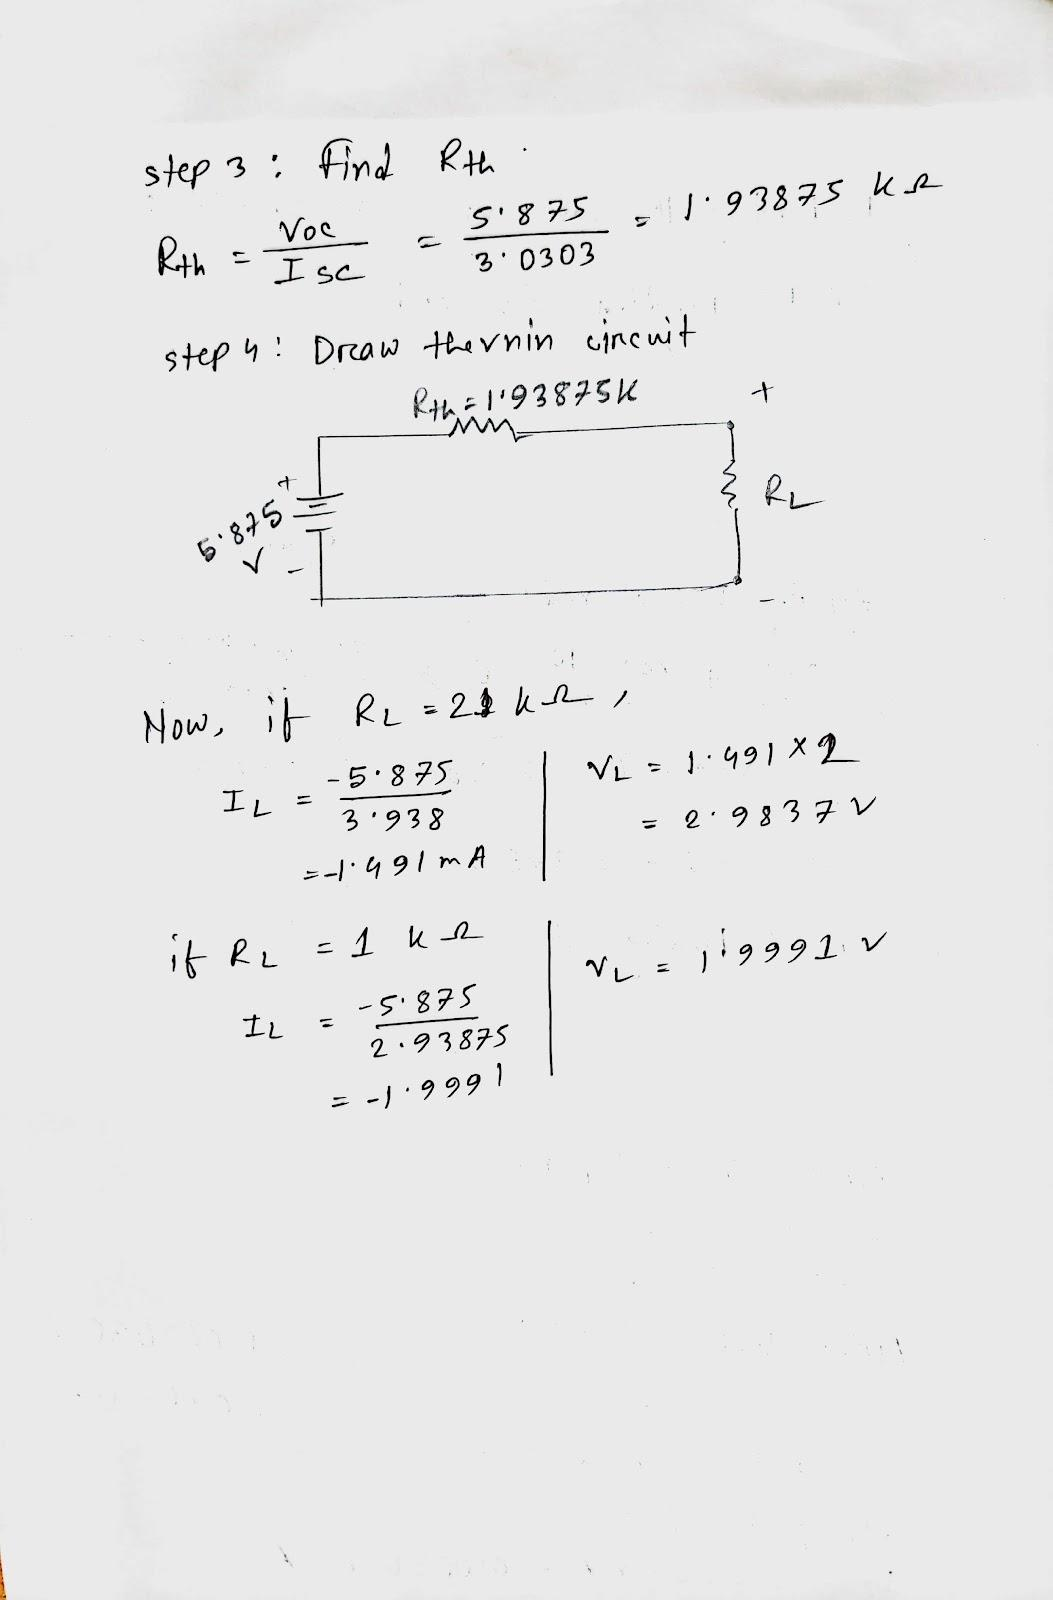 step 3 : Find Rth.
Rth = Voc / Isc = 5.875 / 3.0303 = 1.93875 kΩ
step 4 : Draw thevnin circuit
Rth = 1.93875K
+
+
5.875
V
-
RL
-
Now, if RL = 2 kΩ,
IL = -5.875 / 3.938
= -1.491 mA
VL = 1.491 × 2
= 2.9837 V
if RL = 1 kΩ
IL = -5.875 / 2.93875
= -1.9991
VL = 1.9991 V